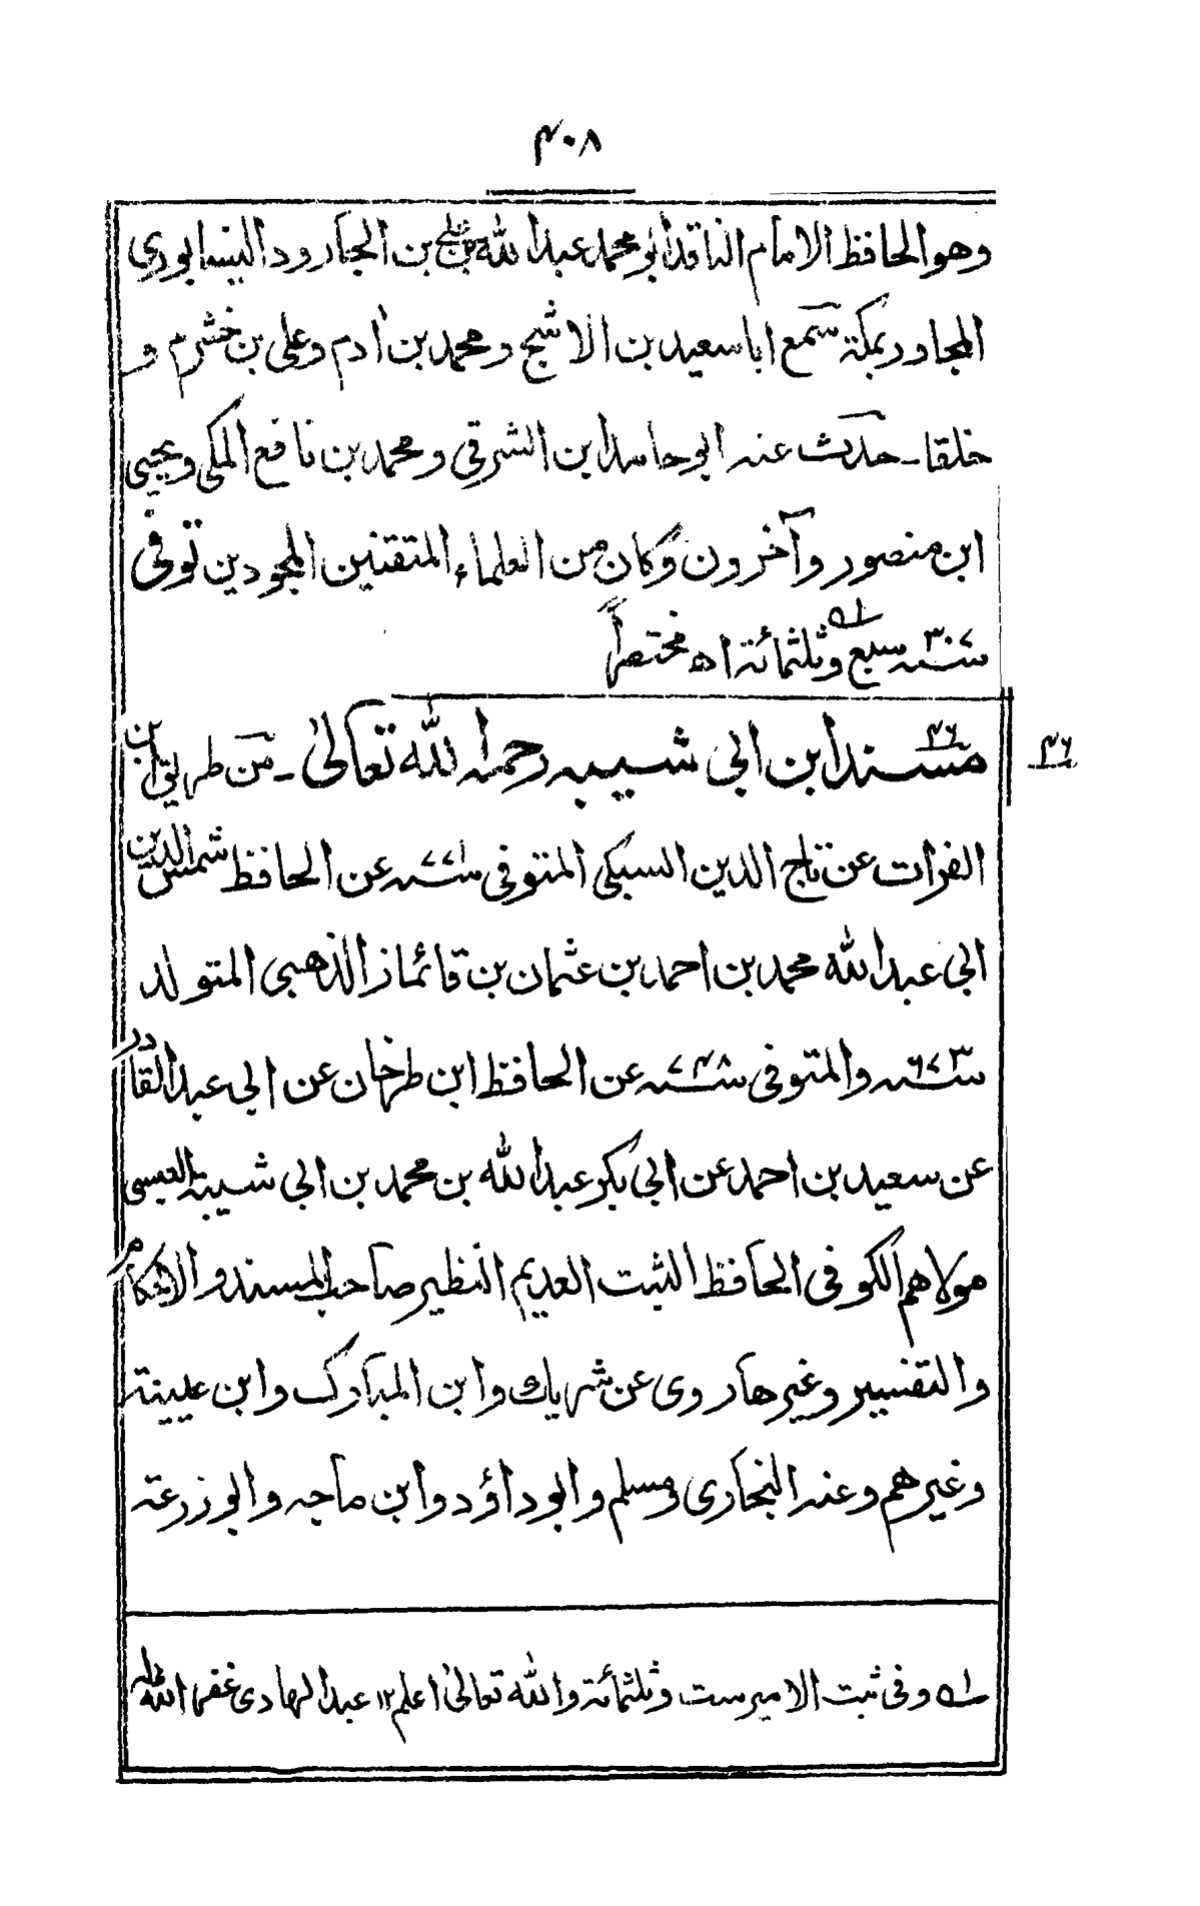 ۴۰۸
وهو الحافظ الامام الناقد ابو محمد عبد الله بن علی بن الجارود النیسابوری
المجاور بمکة سمع ابا سعید بن الاشج ومحمد بن اٰدم وعلی بن خشرم و
خلقا ـ حدث عنه ابو حامد ابن الشرقی ومحمد بن نافع المکی ویحیی
ابن منصور وآخرون وکان من العلماء المتقنین المجودین توفی
سنه ۳۰۷ سبع وثلثمائة اھ مختصراً
۴۶
مسند ابن ابی شیبه رحمه الله تعالیٰ ـ من طریق ابن
الفرات عن تاج الدین السبکی المتوفی سنه ۷۷۱ عن الحافظ شمس الدین
ابی عبد الله محمد بن احمد بن عثمان بن قائماز الذهبی المتولد
سنه ۶۷۳ والمتوفی سنه ۷۴۸ عن الحافظ ابن طرخان عن ابی عبد القادر
عن سعید بن احمد عن ابی بکر عبد الله بن محمد بن ابی شیبة العبسی
مولاهم الکوفی الحافظ الثبت العدیم النظیر صاحب المسند والاحکام
والتفسیر وغیرها روی عن شریك وابن المبارک وابن عیینة
وغیرهم وعنه البخاری ومسلم وابو داؤد وابن ماجه وابو زرعة
۱ه وفی ثبت الامیر ست وثلثمائة والله تعالیٰ اعلم ۱۲ عبد الهادی غفر الله له